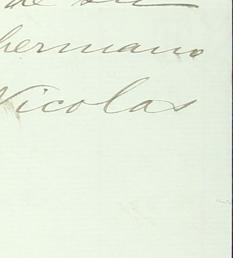 de su
hermano
Nicolas